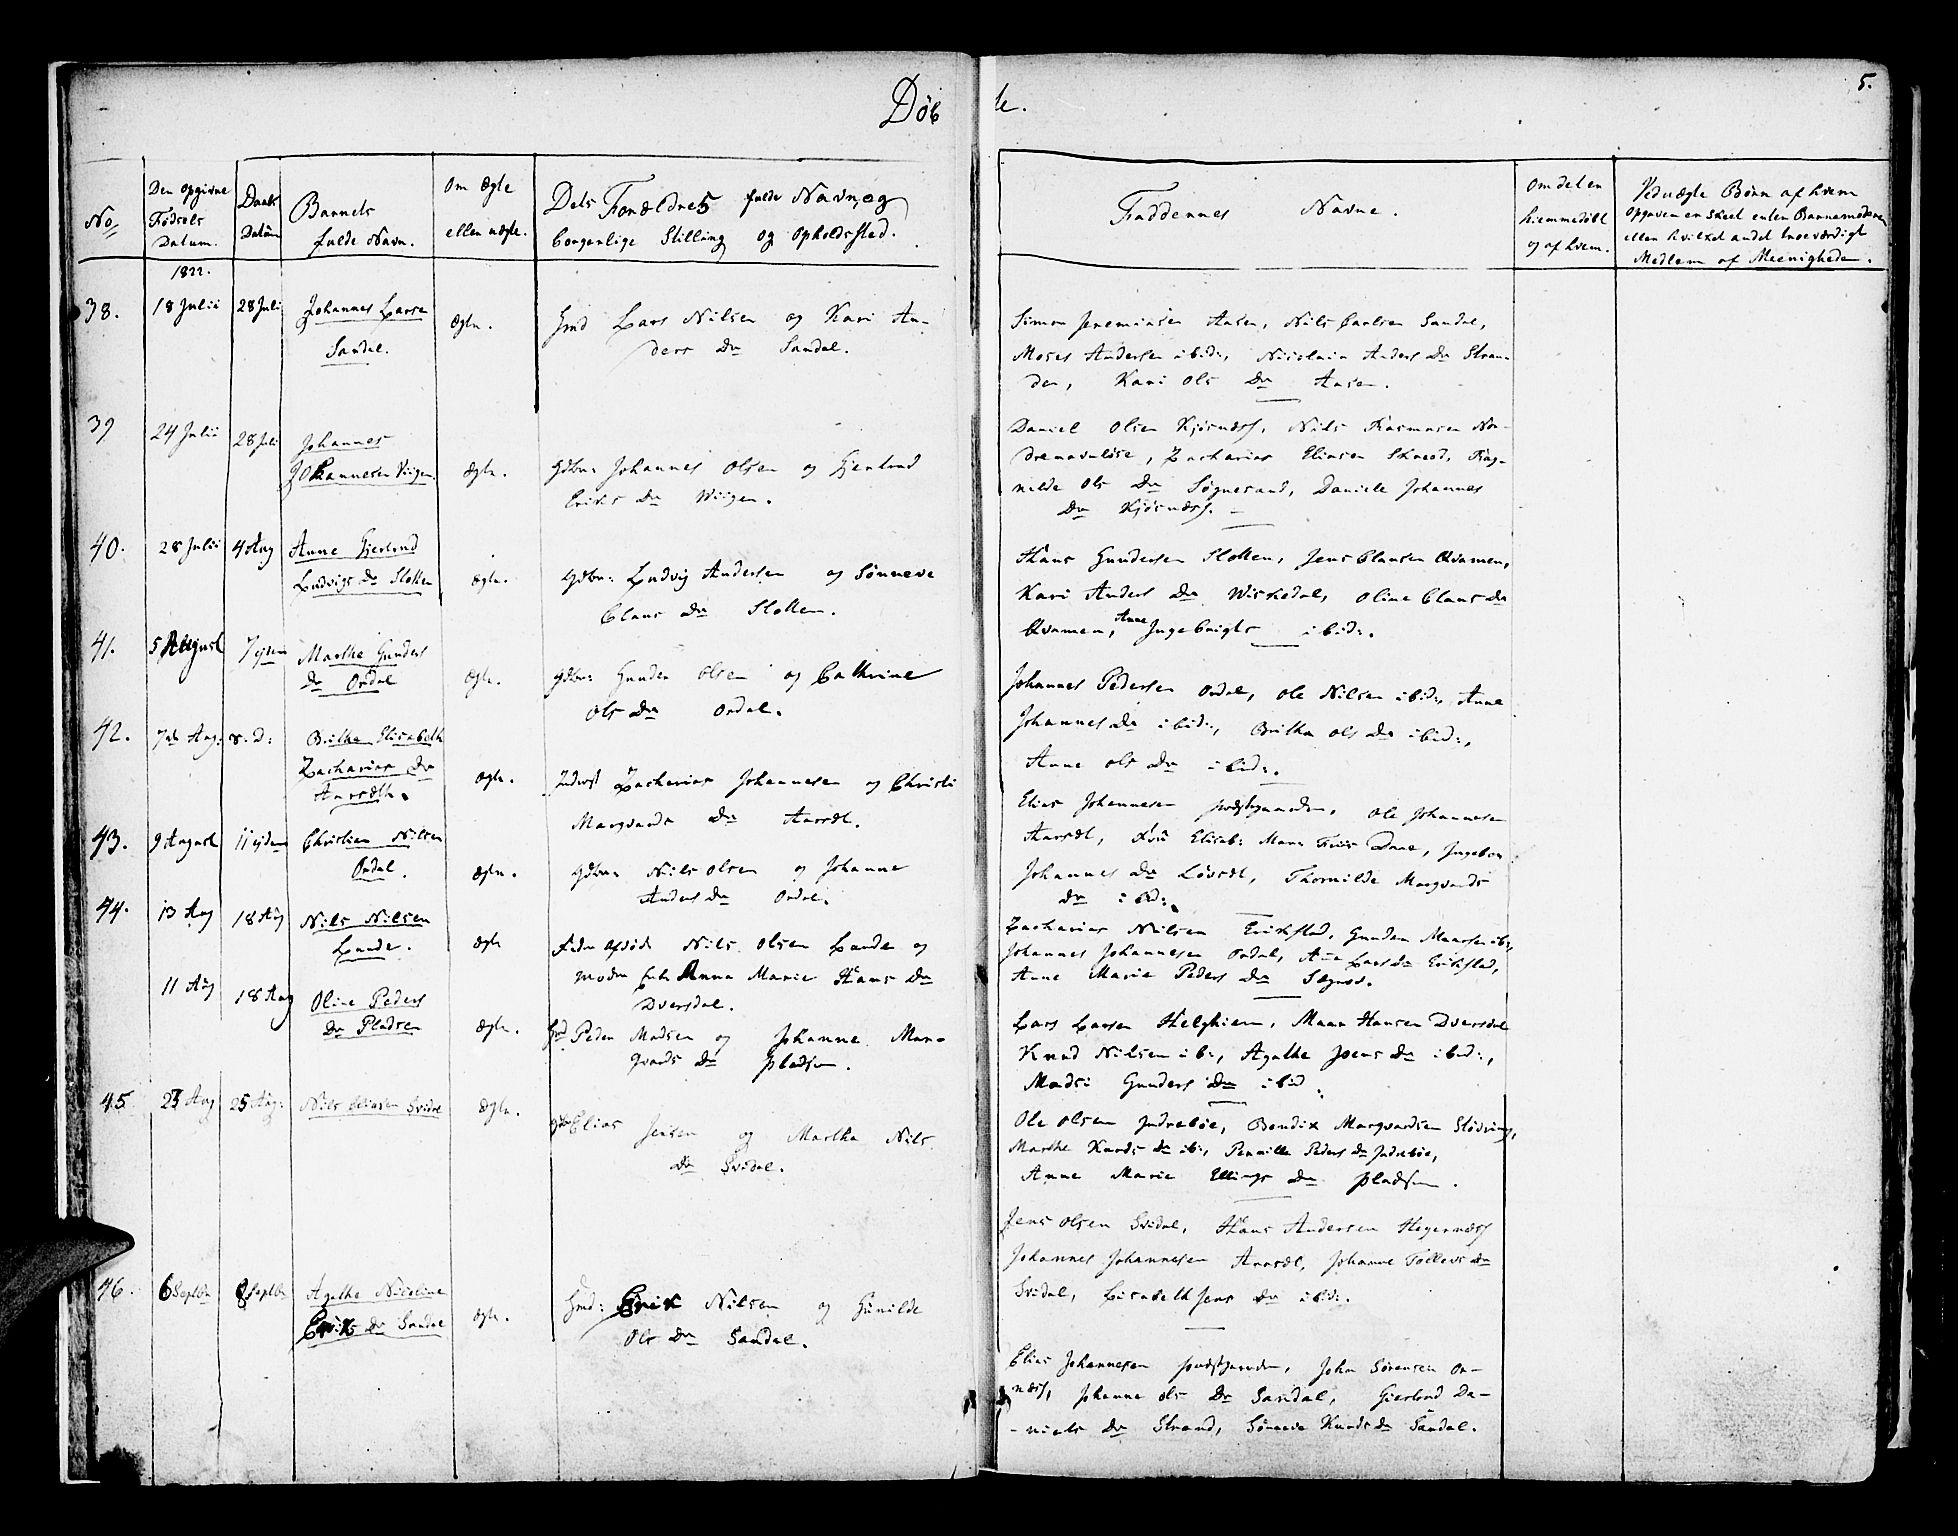 Døb
te.
5.
No
Den opgivne
Fødsels
Datum.
Daabs
Datum
Barnets
fulde Navn.
Om Ægte
eller uægte.
Dets Forældres fulde Navn, og
borgerlige Stilling og Opholdssted.
Faddernes Navne.
Om det er
hiemmedøbt
og af hvem.
Ved uægte Børn af hvem
opgaven er skeet enten Barnemoderen
eller hvilket andet troeværdigt
Medlem af Meenigheden.
1822.
38. 18 Julii 28 Juli Johannes Larsen
Sandal.
Ægte.
Hmd Lars Nilsen og Kari An-
ders Dr Sandal.
Simon Jeremiasen Aasen, Nils Carlsen Sandal,
Moses Andersen ibid:, Nicolaia Anders Dr Stran-
den, Kari Ols Dr Aasen.
39 24 Julii 28 Juli Johannes
Johannesen Viigen.
Ægte.
Gdbr: Johannes Olsen og Gjertrud
Eriks Dr Wiigen.
Daniel Olsen Kjørnæss, Nils Rasmusen
Zacharias Eliasen Rag-
nilde Ols Dr Søgnesand, Daniele Johannes
Dr Kjørnæss.
40. 28 Julii 4 Aug Anne Gjertrud
Ludvigs Dr Slotten
Ægte.
Gdbr: Ludvig Andersen og Sønneve
Claus Dr Slotten.
Hans Gundersen Slotten, Jens Clausen Qvamen,
Kari Anders Dr Wiskedal, Oline Claus Dr
Qvamen, Anne Ingebrigts ibid:.
41. 5 August 7 ejsdem Marthe Gunders
Dr Ordal
Ægte.
Gdbr: Gunder Olsen og Cathrine
Ols Dr Ordal.
Johannes Pedersen Ordal, Ole Nilsen ibid:, Anne
Johannes Dr ibid:, Brithe Ols Dr ibid:,
Anne Ols Dr ibid:.
42. 7de Aug: 8. D: Brithe Elisabeth
Zacharias Dr
Aarsæth.
Ægte.
Inderst Zacharias Johannesen og Christi
Margvards Dr Aarsæt.
Elias Johannesen præstgaarden, Ole Johannesen
Aarsæt, Elisab: Maria Friis Daae, Ingebor
Johannes Dr Løvset, Thornilde Margvards
Dr ibid:.
43. 9 August 11 ejsdem Christian Nilsen
Ordal.
Ægte.
Gdbr: Nils Olsen og Johanne
Anders Dr Ordal.
Zacharias Nilsen Erikstad, Gunder ib:,
Johannes Johannesen Ordal, Ane Lars Dr Erikstad,
Anne Marie Peders Dr
44. 13 Aug 18 Aug Nils Nilsen
Lunde.
Ægte
Fader Afdøde Nils Olsen Lunde og
moder Enke Anna Marie Hans Dr
Dversdal.
Lars Larsen Helgheim, Hansen Dversdal
Knud Nilsen ib:, Agathe Jens Dr ibid:,
Madsi Gunders Dr ibid.
11 Aug 18 Aug Oline Peders
Dr Pladsen
Ægte.
Hmd Peder Madsen og Johanne Mar-
gvards Dr Pladsen.
Ole Olsen Indrebøe, Bendix Margvardsen
Marthe Knuds Dr ib:, Pernille Peders Dr Indrebøe,
Anne Marie Ellings Dr Pladsen.
45. 23 Aug 25 Aug: Nils Eliasen Svidal
Ægte.
Gdbr Elias Jensen og Martha Nils
Dr Svidal.
Jens Olsen Svidal, Hans Andersen Hegernæss
Johannes Johannesen Aarsæt, Johanne Tollevs Dr
Svidal, Lisabeth Jens Dr ibid:.
46. 6 Septbr 8 Septbr Agathe Nicoline
Eriks Dr Sandal
Ægte.
Hmd: Erik Nilsen og Gunilde
Ols Dr Sandal.
Elias Johannesen præstgaarden, John Sørensen Or-
næss, Johanne Ols Dr Sandal, Gjertrud Da-
niels Dr Strand, Sønneve Knuds Dr Sandal.